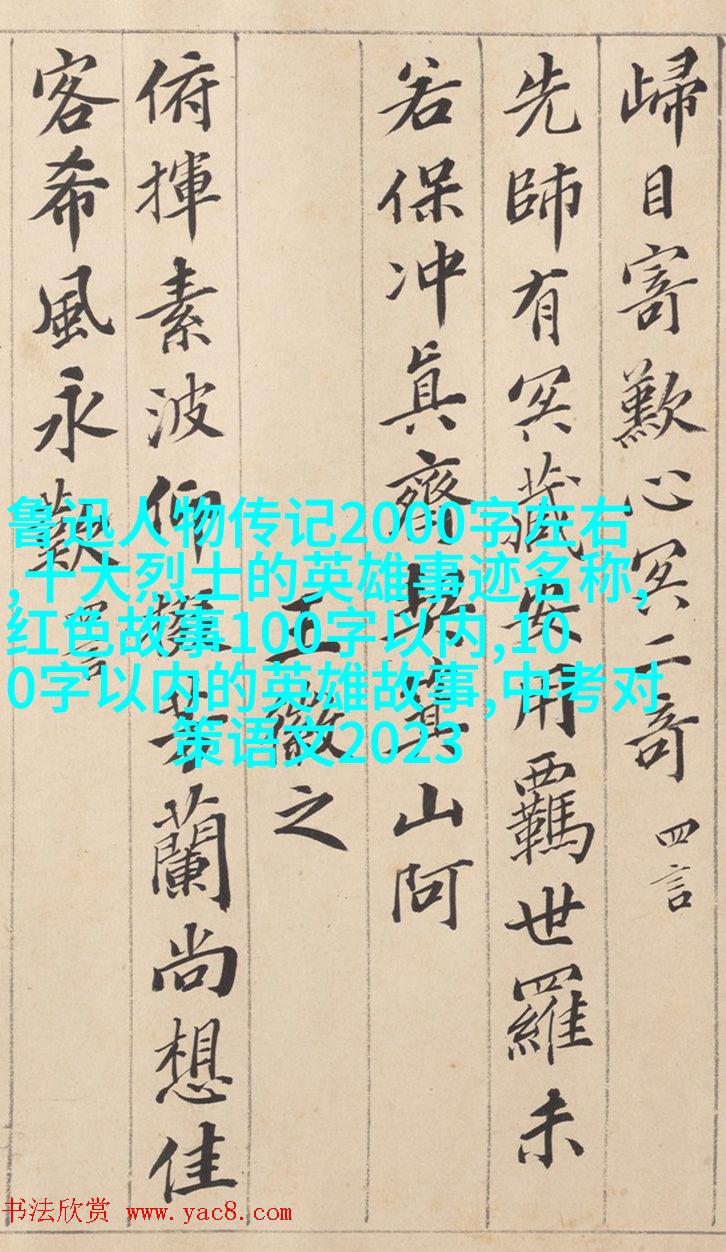 歸目寄歎心冥二奇 四言
先師有冥藏安用羈世羅未
若保冲眞齊契箕山阿
王徽之
俯揮素波仰掇芳蘭尚想佳
客希風永歎 四言
鲁迅人物传记2000字左右
,十大烈士的英雄事迹名称,
红色故事100字以内,10
0字以内的英雄故事,中考对
策语文2023
书法欣赏 www.yac8.com